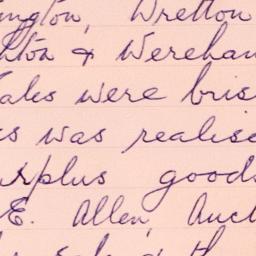 ington, Wretton
hton & Wereham
Sales were bris
es was realise
urplus goods
E. Allen, Auct